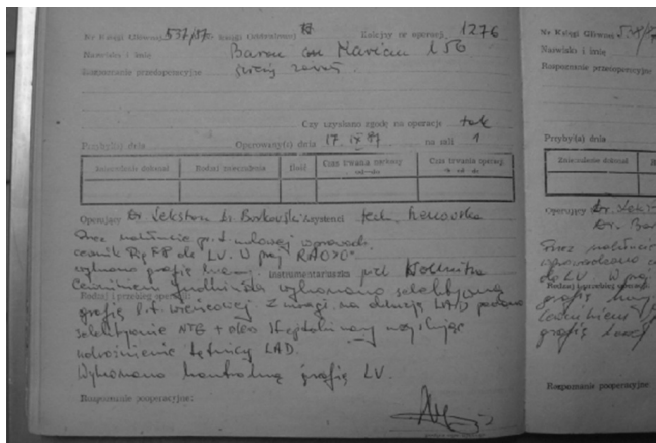 Nr Księgi Głównej 537/87 Nr księgi Oddziałowej Kolejny nr operacji 1276
Nazwisko i imię Baron Marian l 56
Rozpoznanie przedoperacyjne świeży zawał
Czy uzyskano zgodę na operację tak
Przybył(a) dnia Operowany(a) dnia 17. IX na sali 1
Znieczulenie dokonał Rodzaj znieczulenia Ilość Czas trwania narkozy od - do Czas trwania operacji od do
Operujący Dr Lekston Dr Borkowski Asystenci tech.
Przez nakłucie pr. t. udowej wprowadz.
cewnik Pig do LV. W proj RAO 30°
wykonano grafię komory. Instrumentariuszka piel
Cewnikiem Judkinsa wykonano selektywną
Rodzaj i przebieg operacji:
grafię l.t. wieńcowej z uwagi na okluzję LAD podano
selektywnie NTG + uzyskując
udrożnienie tętnicy LAD.
Wykonano kontrolną grafię LV.
Rozpoznanie pooperacyjne:
Nr Księgi Głównej 538/
Nazwisko i imię
Rozpoznanie przedoperacyjne
Przybył(a) dnia
Znieczulenie dokonał
Operujący Dr
Dr. Bor
Przez nakłucie
wprowadzono
do LV. W proj
Rodzaj i przebieg operacji:
grafię
Rozpoznanie pooperacyjne